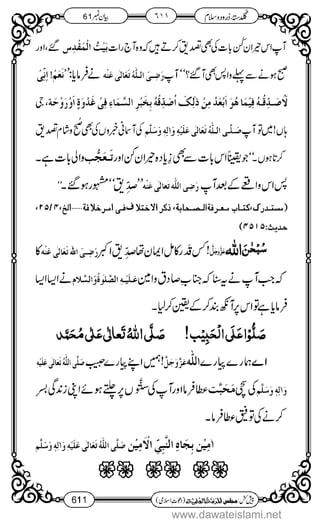 گلدستہ دُرود و سلام ٦١١ بیان نمبر 61
آپ اس حیران کُن بات کی بھی تصدیق کرتے ہیں کہ وہ آج رات بَیْتُ الْمَقْدِس گئے، اور
صبح ہونے سے پہلے واپس بھی آ گئے؟“ آپ رَضِیَ اللہُ تَعَالٰی عَنْہُ نے فرمایا: ”نَعَمْ! اِنِّیْ
لَاُصَدِّقُہٗ فِیْمَا ھُوَ اَبْعَدُ مِنْ ذٰلِکَ اُصَدِّقُہٗ بِخَبْرِ السَّمَآءِ فِیْ غَدْوَۃٍ اَوْ رَوْحَۃٍ، جی
ہاں! میں تو آپ صَلَّی اللہُ تَعَالٰی عَلَیْہِ وَاٰلِہٖ وَسَلَّم کی آسمانی خبروں کی بھی صبح و شام تصدیق
کرتا ہوں۔“ اور یقیناً وہ تو اس بات سے بھی زیادہ حیران کُن اور تَعَجُّب والی بات ہے۔
پس اس واقعے کے بعد آپ رَضِیَ اللہُ تَعَالٰی عَنْہُ ”صِدِّیق“ مشہور ہو گئے۔
(مستدرک، کتاب معرفۃ الصحابۃ، ذکر الاختلاف فی امر خلافۃ ـــ الخ، ٤ / ٢٥،
حدیث: ٤٥١٥)
سُبْحٰنَ اللہ عَزَّوَجَلَّ! کس قدر کامل ایمان تھا صدیقِ اکبر رَضِیَ اللہُ تَعَالٰی عَنْہُ کا
کہ جب بھی آپ نے یہ سنا کہ جنابِ صادق و امین عَلَیْہِ الصَّلٰوۃُ وَالسَّلَام نے ایسا ایسا
فرمایا ہے تو اس پر آنکھ بند کر کے یقین کر لیا۔
صَلُّوْا عَلَی الْحَبِیْب! صَلَّی اللہُ تَعَالٰی عَلٰی مُحَمَّد
اے ہمارے پیارے اللہ عَزَّوَجَلَّ! ہمیں اپنے پیارے حبیب صَلَّی اللہُ تَعَالٰی عَلَیْہِ
وَاٰلِہٖ وَسَلَّم کی سچی مَحَبَّت عطا فرما اور آپ کی سُنَّتوں پر چلتے ہوئے اپنی زندگی بسر
کرنے کی توفیق عطا فرما۔
اٰمِیْن بِجَاہِ النَّبِیِّ الْاَمِیْن صَلَّی اللہُ تَعَالٰی عَلَیْہِ وَاٰلِہٖ وَسَلَّم
611
www.dawateislami.net